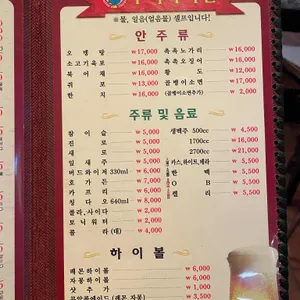 ※물, 얼음(얼음물) 셀프입니다!
안 주 류
오 뎅 탕 ₩17,000 촉촉노가리 ₩16,000
소고기육포 ₩16,000 촉촉오징어 ₩16,000
북 어 채 ₩16,000 황 도 ₩12,000
쥐 포 ₩15,000 골뱅이소면 ₩17,000
한 치 ₩16,000 (골뱅이소면추가) ₩2,000
주류 및 음료
참 이 슬 ₩5,000 생맥주 500cc ₩4,500
진 로 ₩5,000 1700cc ₩16,000
새 로 ₩5,000 2700cc ₩21,000
잎 새 주 ₩5,000 카스,하이트,테라 ₩5,500
버드와이저 330ml ₩6,000 한 맥 ₩5,500
호 가 든 ₩7,000 O B ₩5,500
카 프 리 ₩6,000 켈 리 ₩5,500
칭 다 오 640ml ₩8,000
콜라,사이다 ₩2,000
토 니 워 터 ₩2,000
콜 라 (대) ₩4,000
하 이 볼
레몬하이볼 ₩6,000
자몽하이볼 ₩6,000
샷 추 가 ₩3,000